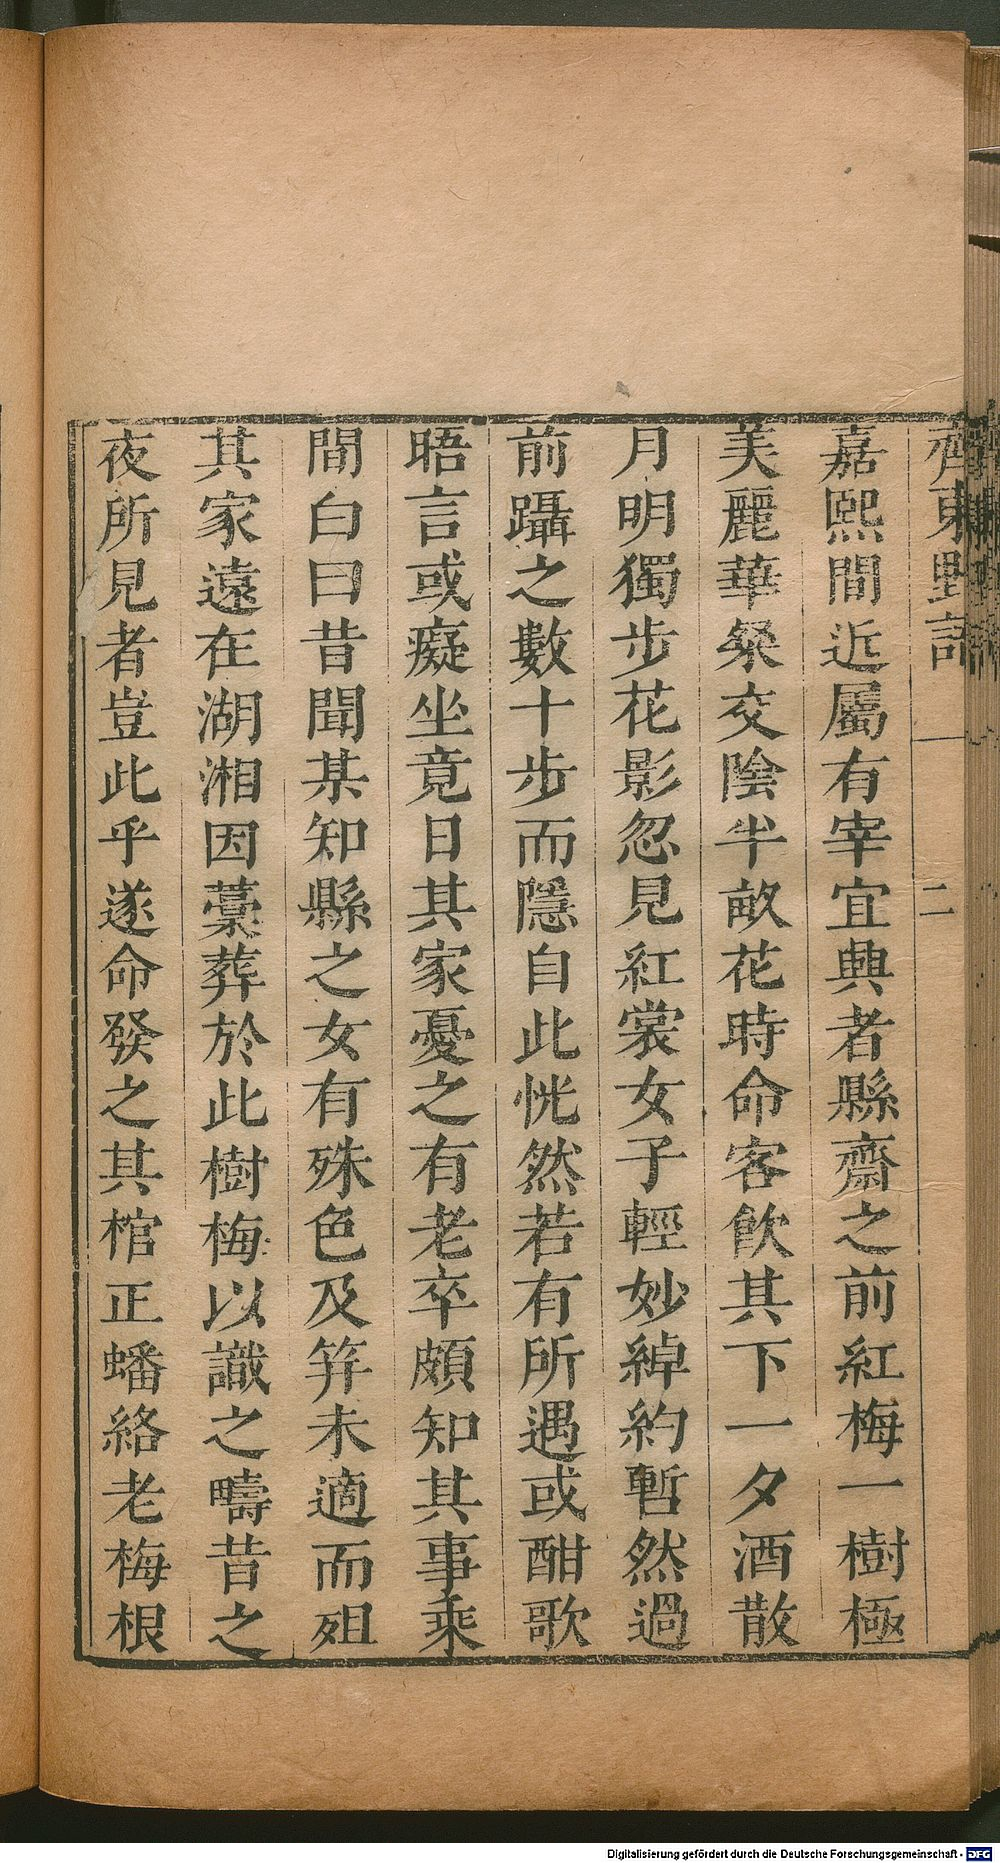 齊東野語 二
嘉熙間近屬有宰宜興者縣齋之前紅梅一樹極
美麗華粲交陰半畝花時命客飲其下一夕酒散
月明獨步花影忽見紅裳女子輕妙綽約暫然過
前躡之數十步而隱自此恍然若有所遇或酣歌
晤言或癡坐竟日其家憂之有老卒頗知其事乘
間白曰昔聞某知縣之女有殊色及笄未適而殂
其家遠在湖湘因藁葬於此樹梅以識之疇昔之
夜所見者豈此乎遂命發之其棺正蟠絡老梅根
Digitalisierung gefördert durch die Deutsche Forschungsgemeinschaft - DFG